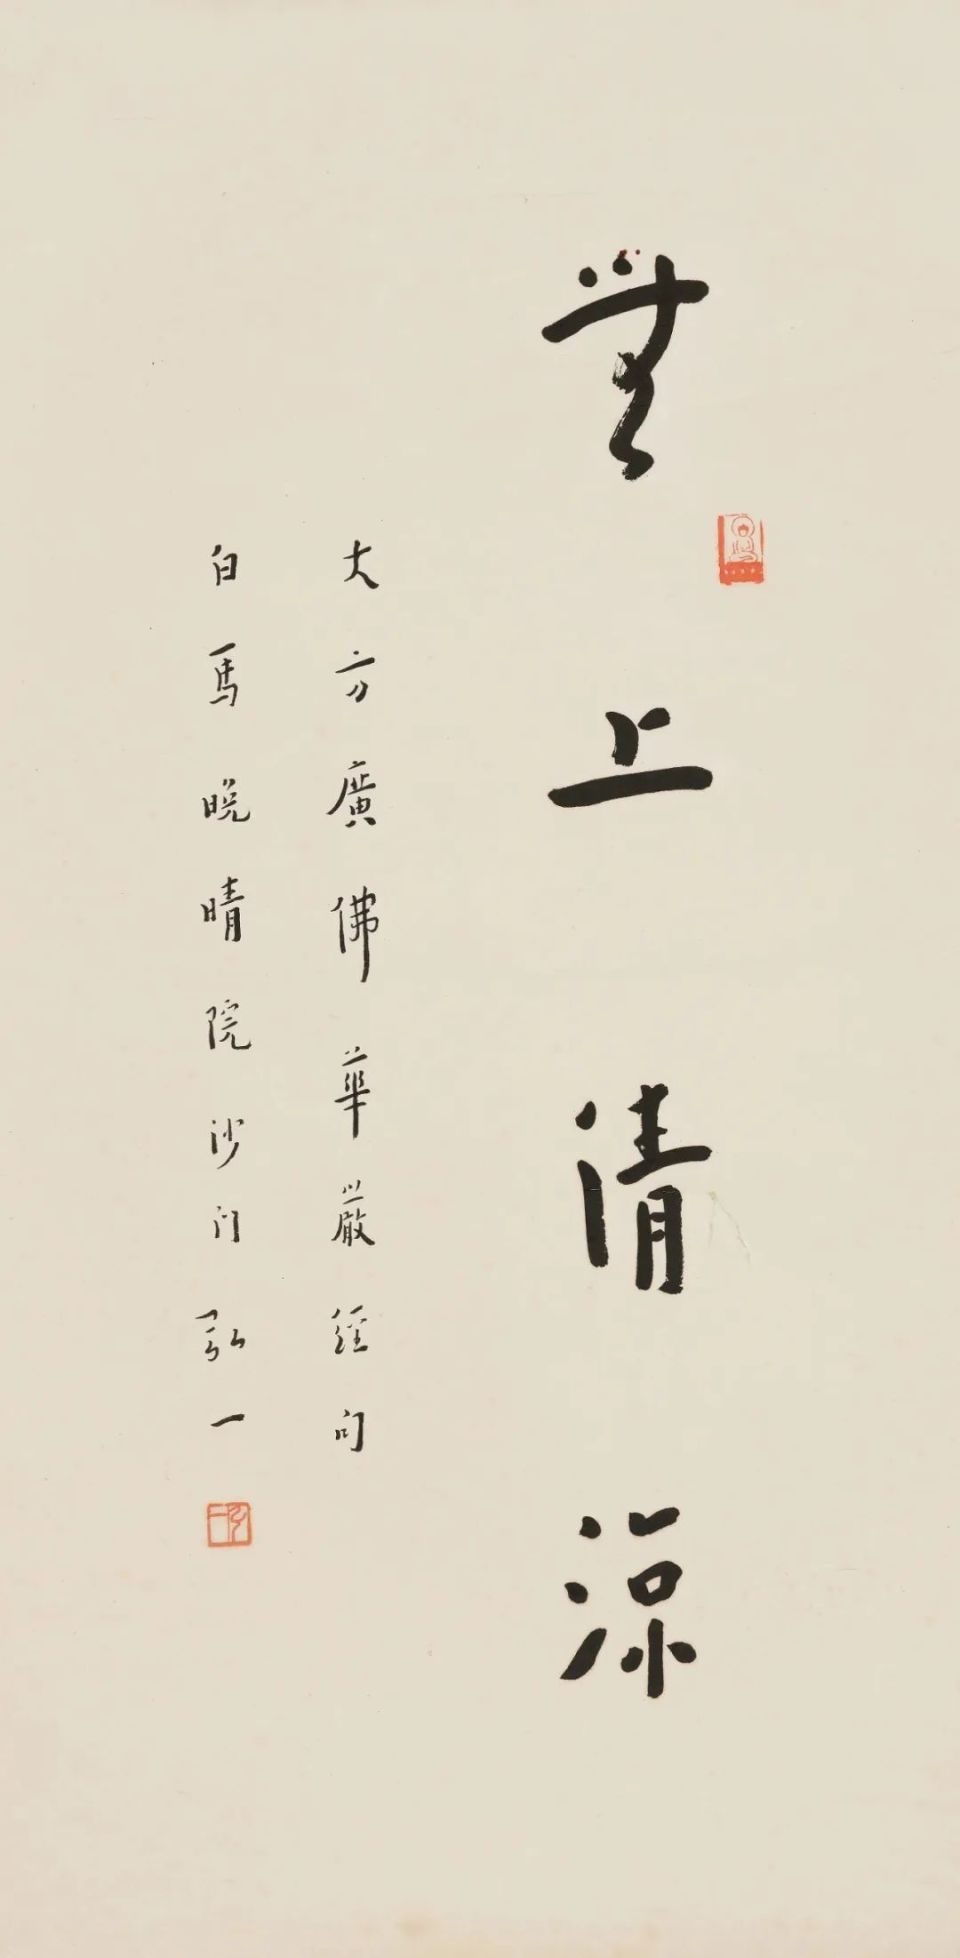 無上清涼
大方廣佛華嚴經句
白馬晚晴院沙門弘一
弘一